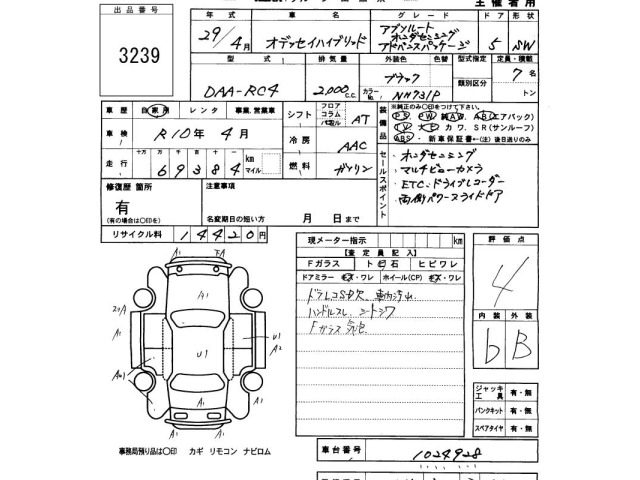 出品番号
3239
年式 車名 グレード ドア 形状
29年 4月 オデッセイハイブリッド アブソルート ホンダセンシング アドバンスパッケージ 5 SW
型式 排気量 外装色 色替 型式指定 定員・積載
DAA-RC4 2,000 C.C. ブラック カラーNo. NH731P 類別区分 7名 トン
車歴 自家用 レンタ 事業、営業車
シフト フロア コラム AT
装備品 ※純正のみ○印をつけて下さい。
PS PW 純AW AB(エアバック)
TV ナビ カワ SR(サンルーフ)
ABS・新車保証書←(注)後日送りのみ
車検 R10年 4月
冷房 AAC
走行 十万 万 千 百 十 69384 km マイル
燃料 ガソリン
セールスポイント
・ホンダセンシング
・マルチビューカメラ
・ETC・ドライブレコーダー
・両側パワースライドドア
修復歴 箇所
有
(有の場合は○印を)
注意事項
名変期日の短い方 月 日まで
リサイクル料 14420円
現メーター指示 km
【査定員記入】
Fガラス トビ石 ヒビワレ
ドアミラー キズ・ワレ ホイール(CP) キズ・ワレ
ドラレコSD欠 車内汚れ
ハンドルスレ シートシワ
Fガラス気泡
評価点
4
内装 外装
b B
A1 FA
A1
U1
A1
U1
A2
A1
A1
A1
ジャッキ 工具 有・無
パンクキット 有・無
スペアタイヤ 有・無
事務局預り品は○印 カギ リモコン ナビロム
車台番号 1024928